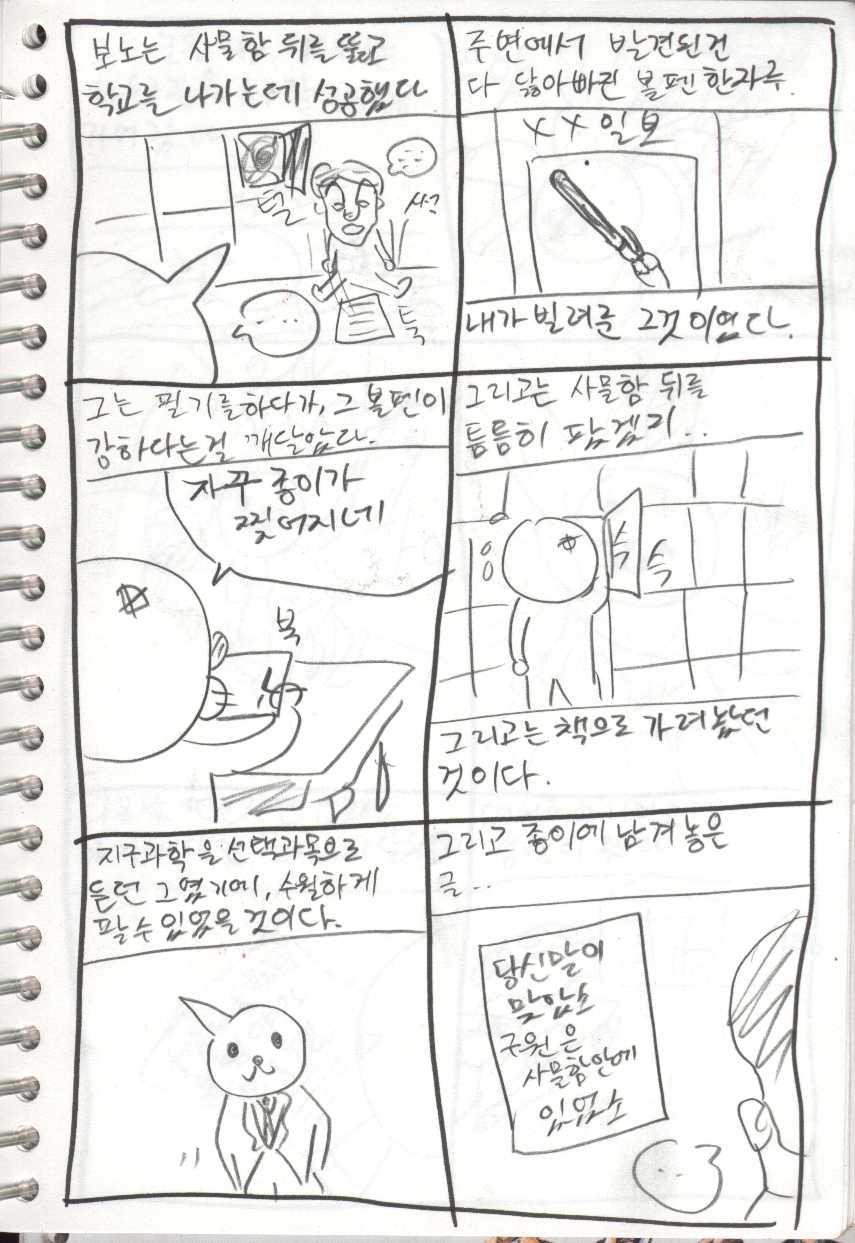 보노는 사물함 뒤를 뚫고
학교를 나가는데 성공했다.
털
썩
툭
주변에서 발견된건
다 닳아빠진 볼펜 한자루.
XX일보
내가 빌려준 그것이었다.
그는 필기를하다가, 그 볼펜이
강하다는걸 깨달았다.
자꾸 종이가
찢어지네
북
그리고는 사물함 뒤를
틈틈히 팠겠지..
슥
슥
그리고는 책으로 가려놨던
것이다.
지구과학을 선택과목으로
듣던 그였기에, 수월하게
팔 수 있었을 것이다.
그리고 종이에 남겨 놓은
글..
당신말이
맞았소
구원은
사물함안에
있었소